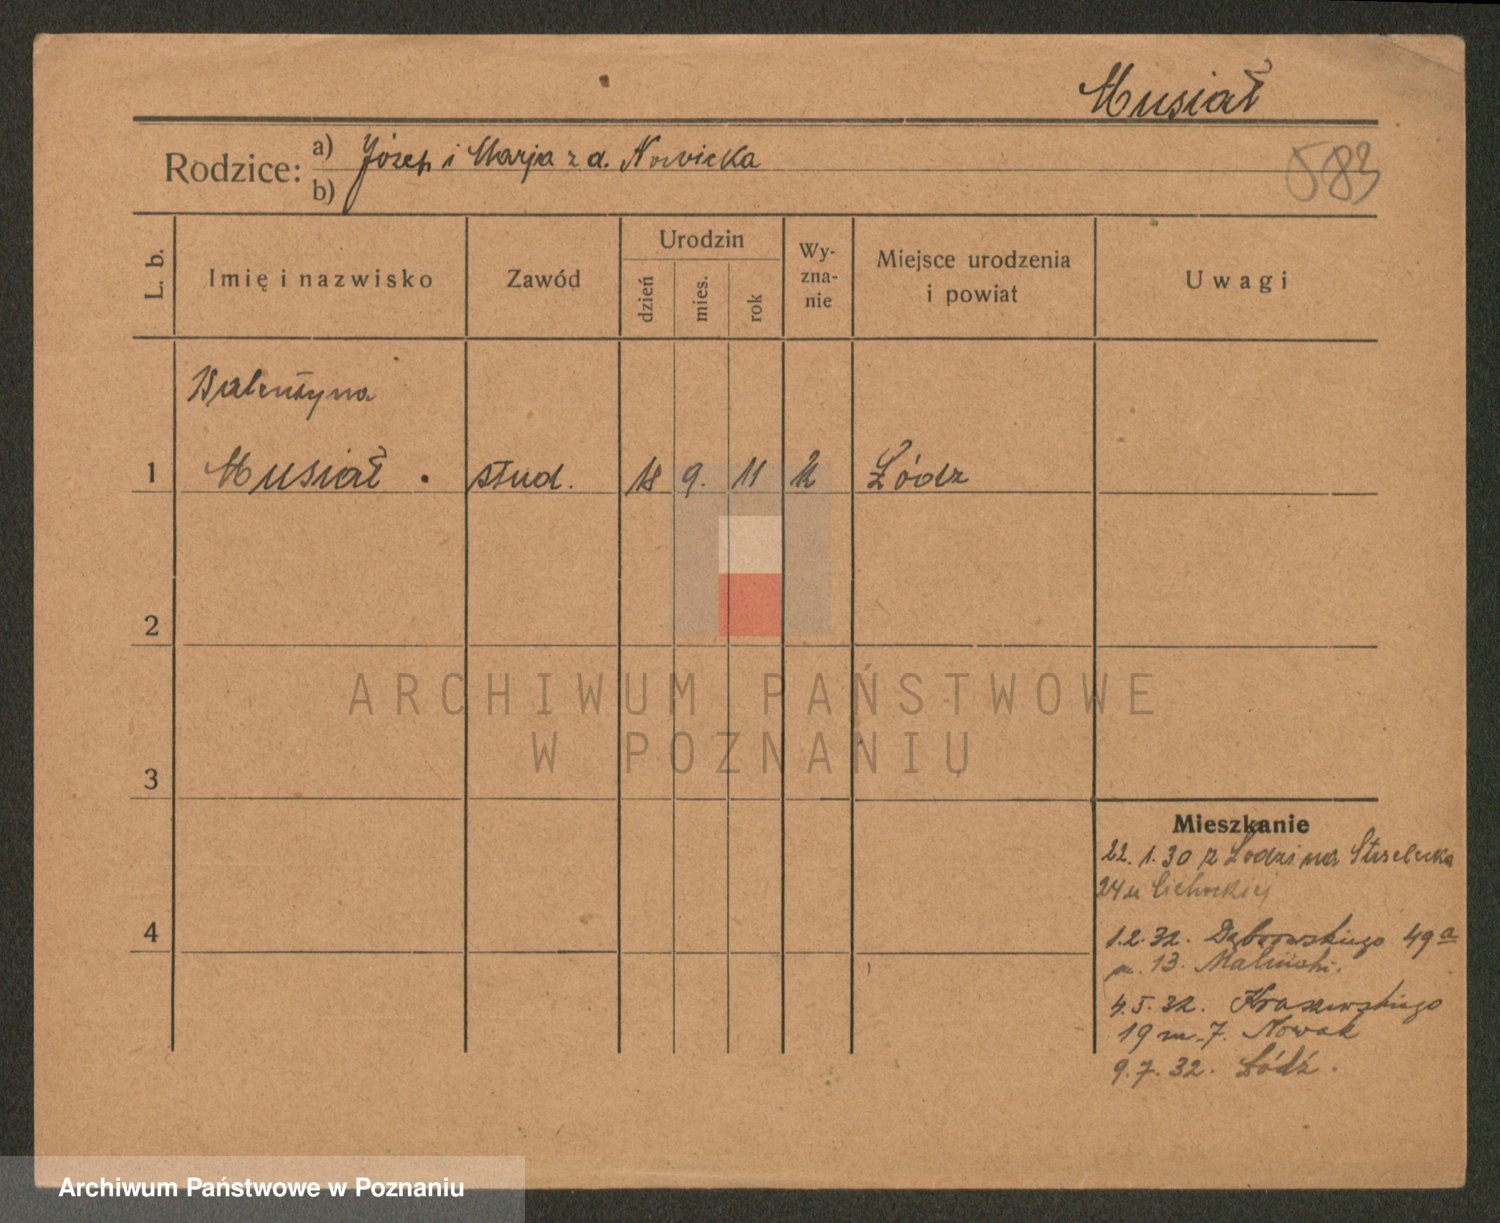 Musiał
583
Rodzice: a) Józef i Marja z d. Nowicka
b)
L. b.
Imię i nazwisko
Zawód
Urodzin
dzień
mies.
rok
Wy-
zna-
nie
Miejsce urodzenia
i powiat
Uwagi
Walentyna
1 Musiał . stud. 18 9. 11 Łódz
2
3
4
Mieszkanie
22. 1. 30 z Łodzi na Strzelecka
24 u Cichockiej
1.2.32. Dąbrowskiego 49a
m. 13. Maliński.
4.5.32. Kraszewskiego
19 m. 7. Nowak
9.7.32. Łódź.
ARCHIWUM PAŃSTWOWE
W POZNANIU
Archiwum Państwowe w Poznaniu